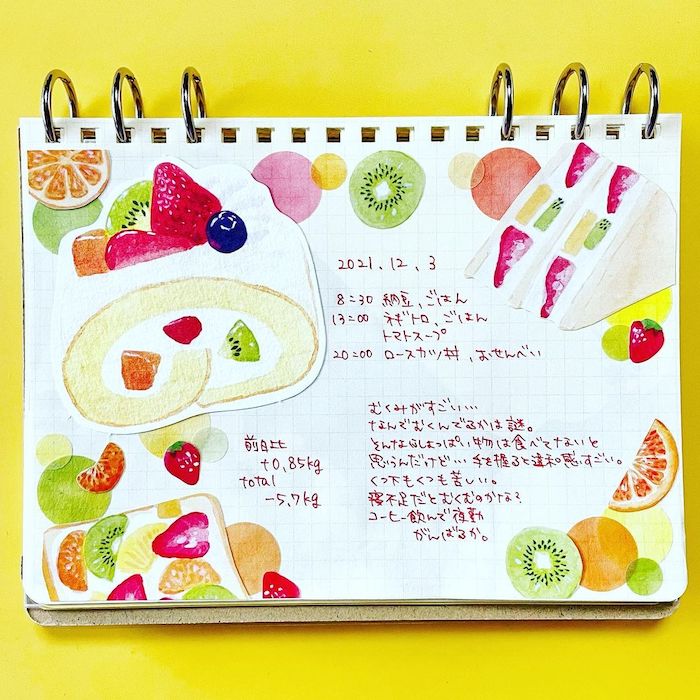 2021, 12, 3
8:30 納豆、ごはん
13:00 ネギトロ、ごはん
トマトスープ
20:00 ロースカツ丼、おせんべい
むくみがすごい…
なんでむくんでるかは謎。
そんなにしょっぱい物は食べてないと
思うんだけど…手を握ると違和感すごい。
くつ下もくつも苦しい。
寝不足だとむくむのかな?
コーヒー飲んで夜勤
がんばるか。
前日比
+0.85kg
total
-5.7kg